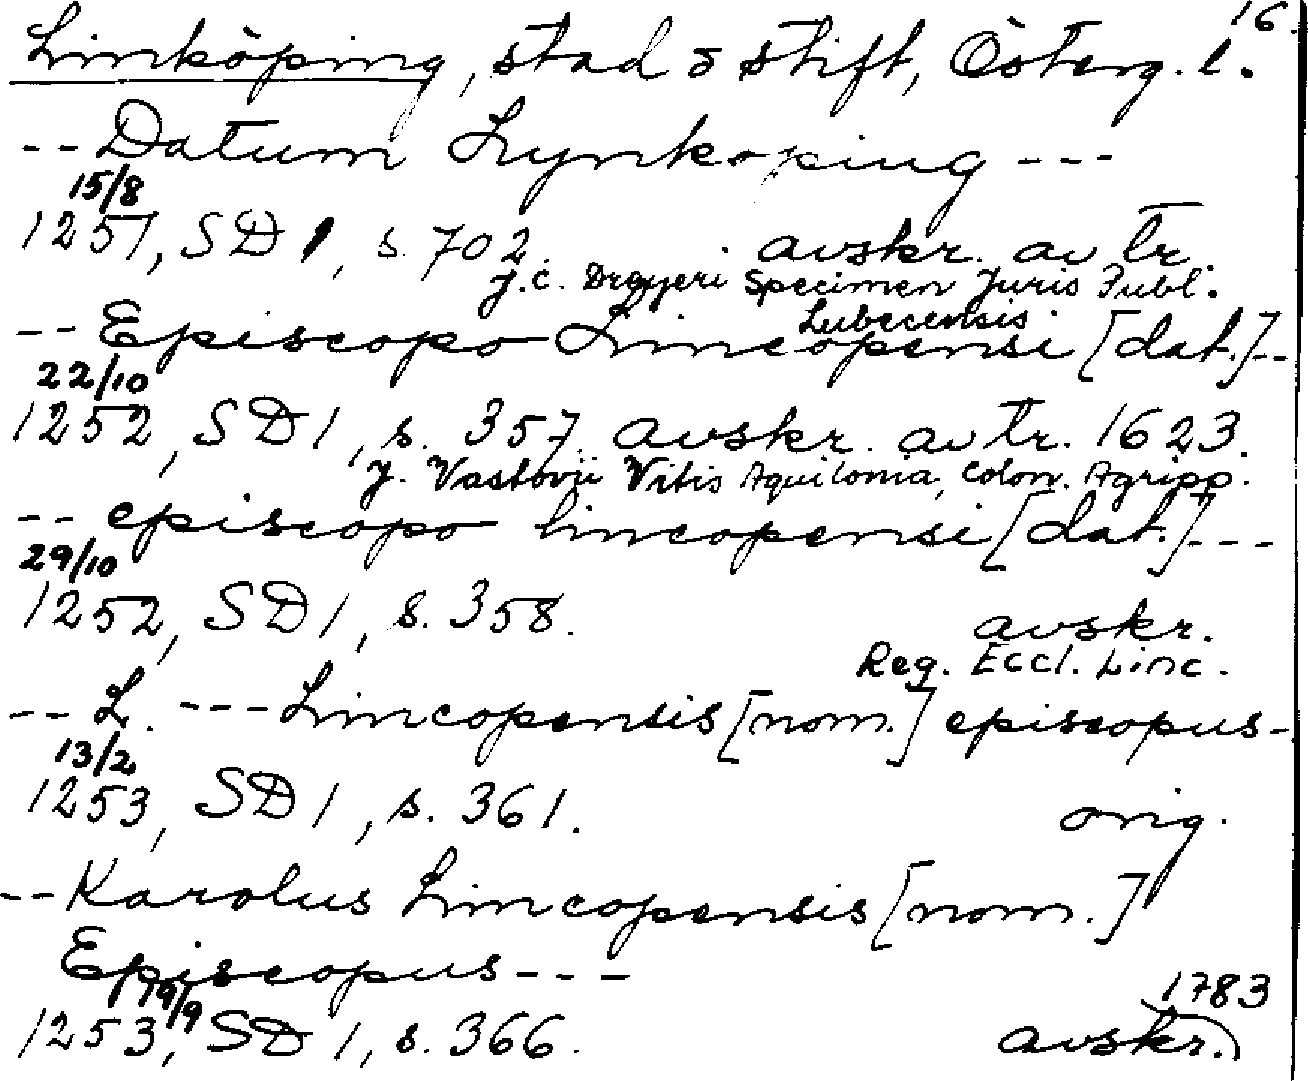 16.
Linköping, stad o stift, Österg. l.
-- Datum Lynkoping ---
15/8
1251, SD 1, s. 702. avskr. av tr.
J. C. Dreyeri Specimen Juris Publ.
Lubecensis.
-- Episcopo Lincopensi [dat.] --
22/10
1252, SD 1, s. 357. avskr. av tr. 1623.
J. Vastovii Vitis Aquilonia, Colon. Agripp.
-- episcopo lincopensi [dat.] ---
29/10
1252, SD 1, s. 358. avskr.
Reg. Eccl. Linc.
-- L. --- Lincopensis [nom.] episcopus -
13/2
1253, SD 1, s. 361. orig.
-- Karolus Lincopensis [nom.]
Episcopus ---
19/9 1783
1253, SD 1, s. 366. avskr.